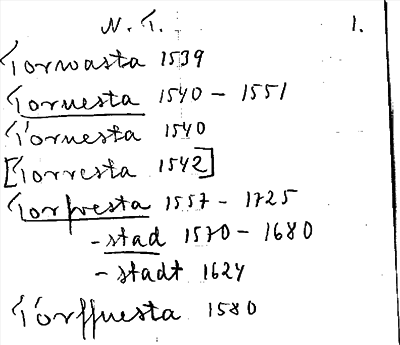 N. T. 1.
Torwasta 1539
Toruesta 1540 - 1551
Tóruesta 1540
[Torresta 1542]
Torfvesta 1557 - 1725
- stad 1570 - 1680
- stadt 1624
Tórffuesta 1580